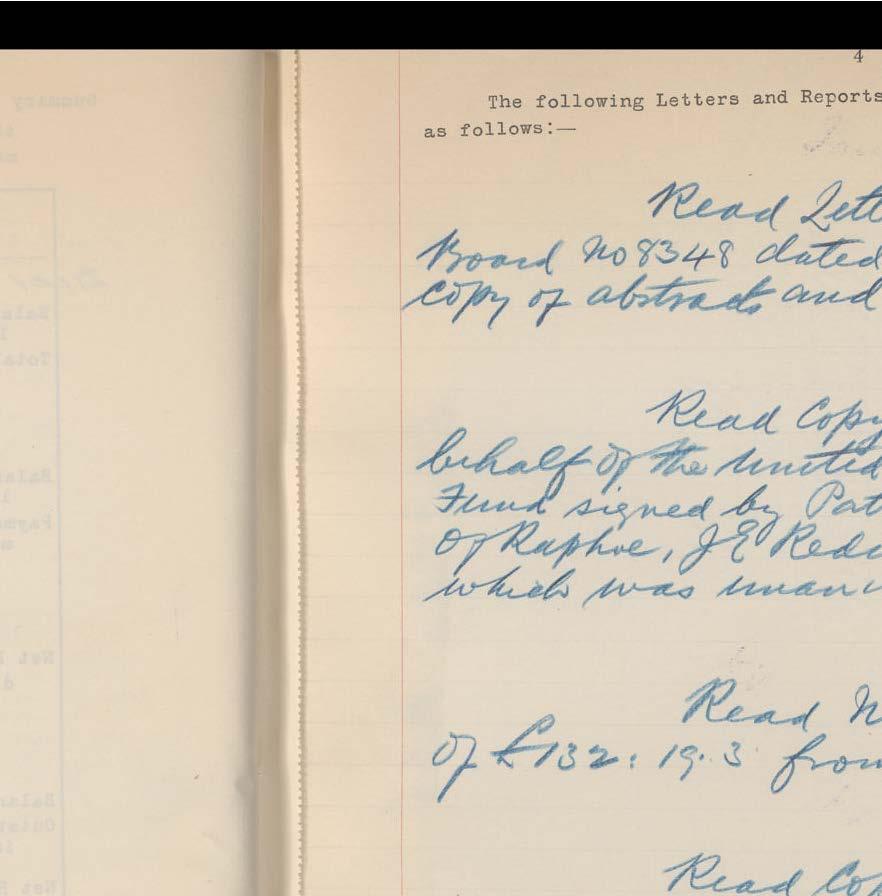 4
The following Letters and Reports
as follows:—
Read Lett
Board No 8348 dated
copy of abstracts and
Read Copy
behalf of the United
Fund signed by Pat
of Raphoe, J E Red
which was unani
Read N
of £132: 19. 3 from
Read Co